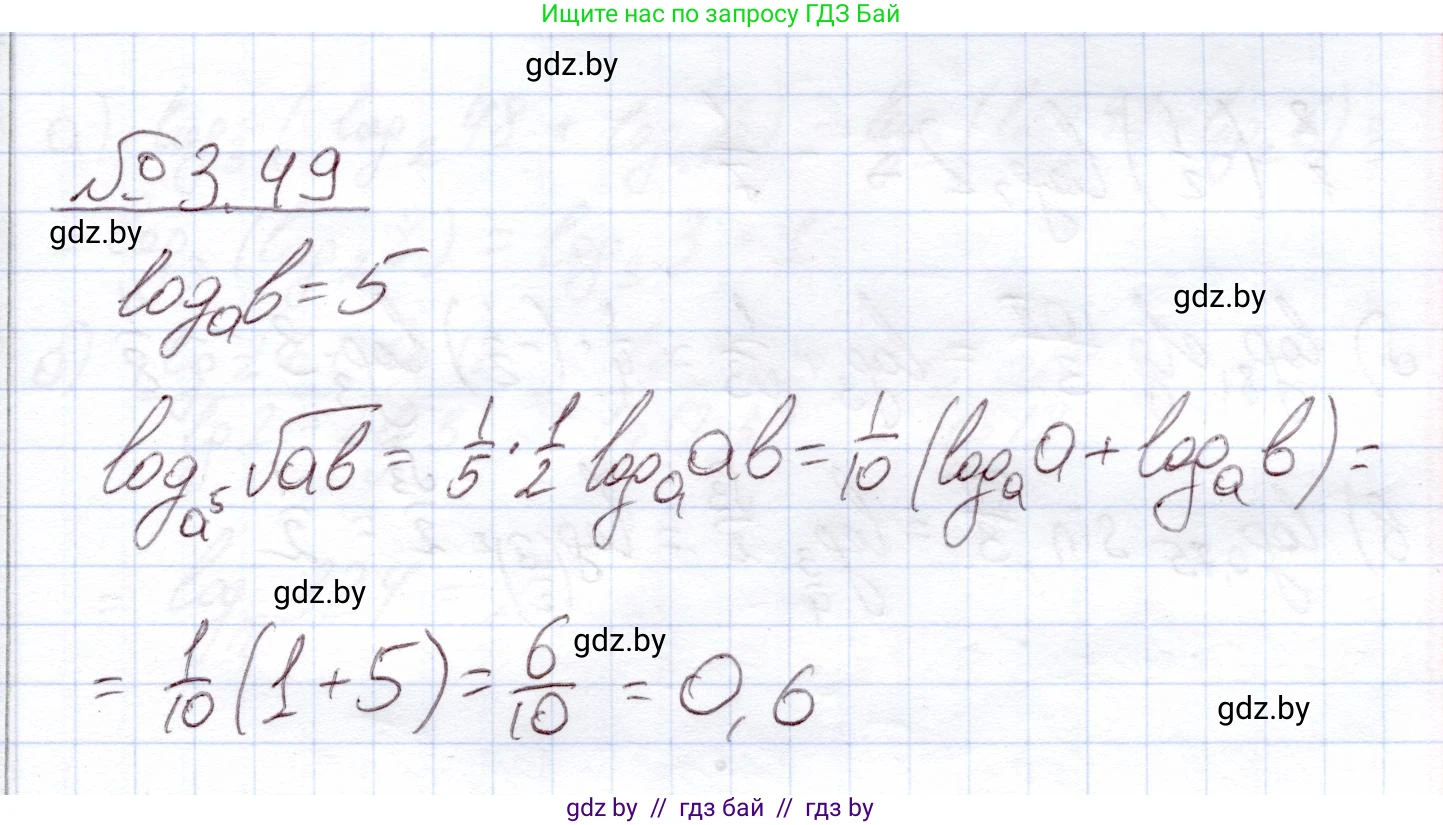 Ищите нас по запросу ГДЗ Бай
gdz.by
№ 3.49
gdz.by
logₐb = 5
gdz.by
log_{a⁵} √ab = 1/5 · 1/2 logₐ ab = 1/10 (logₐ a + logₐ b) =
gdz.by
= 1/10 (1 + 5) = 6/10 = 0,6
gdz.by
gdz.by
gdz by // гдз бай // гдз by